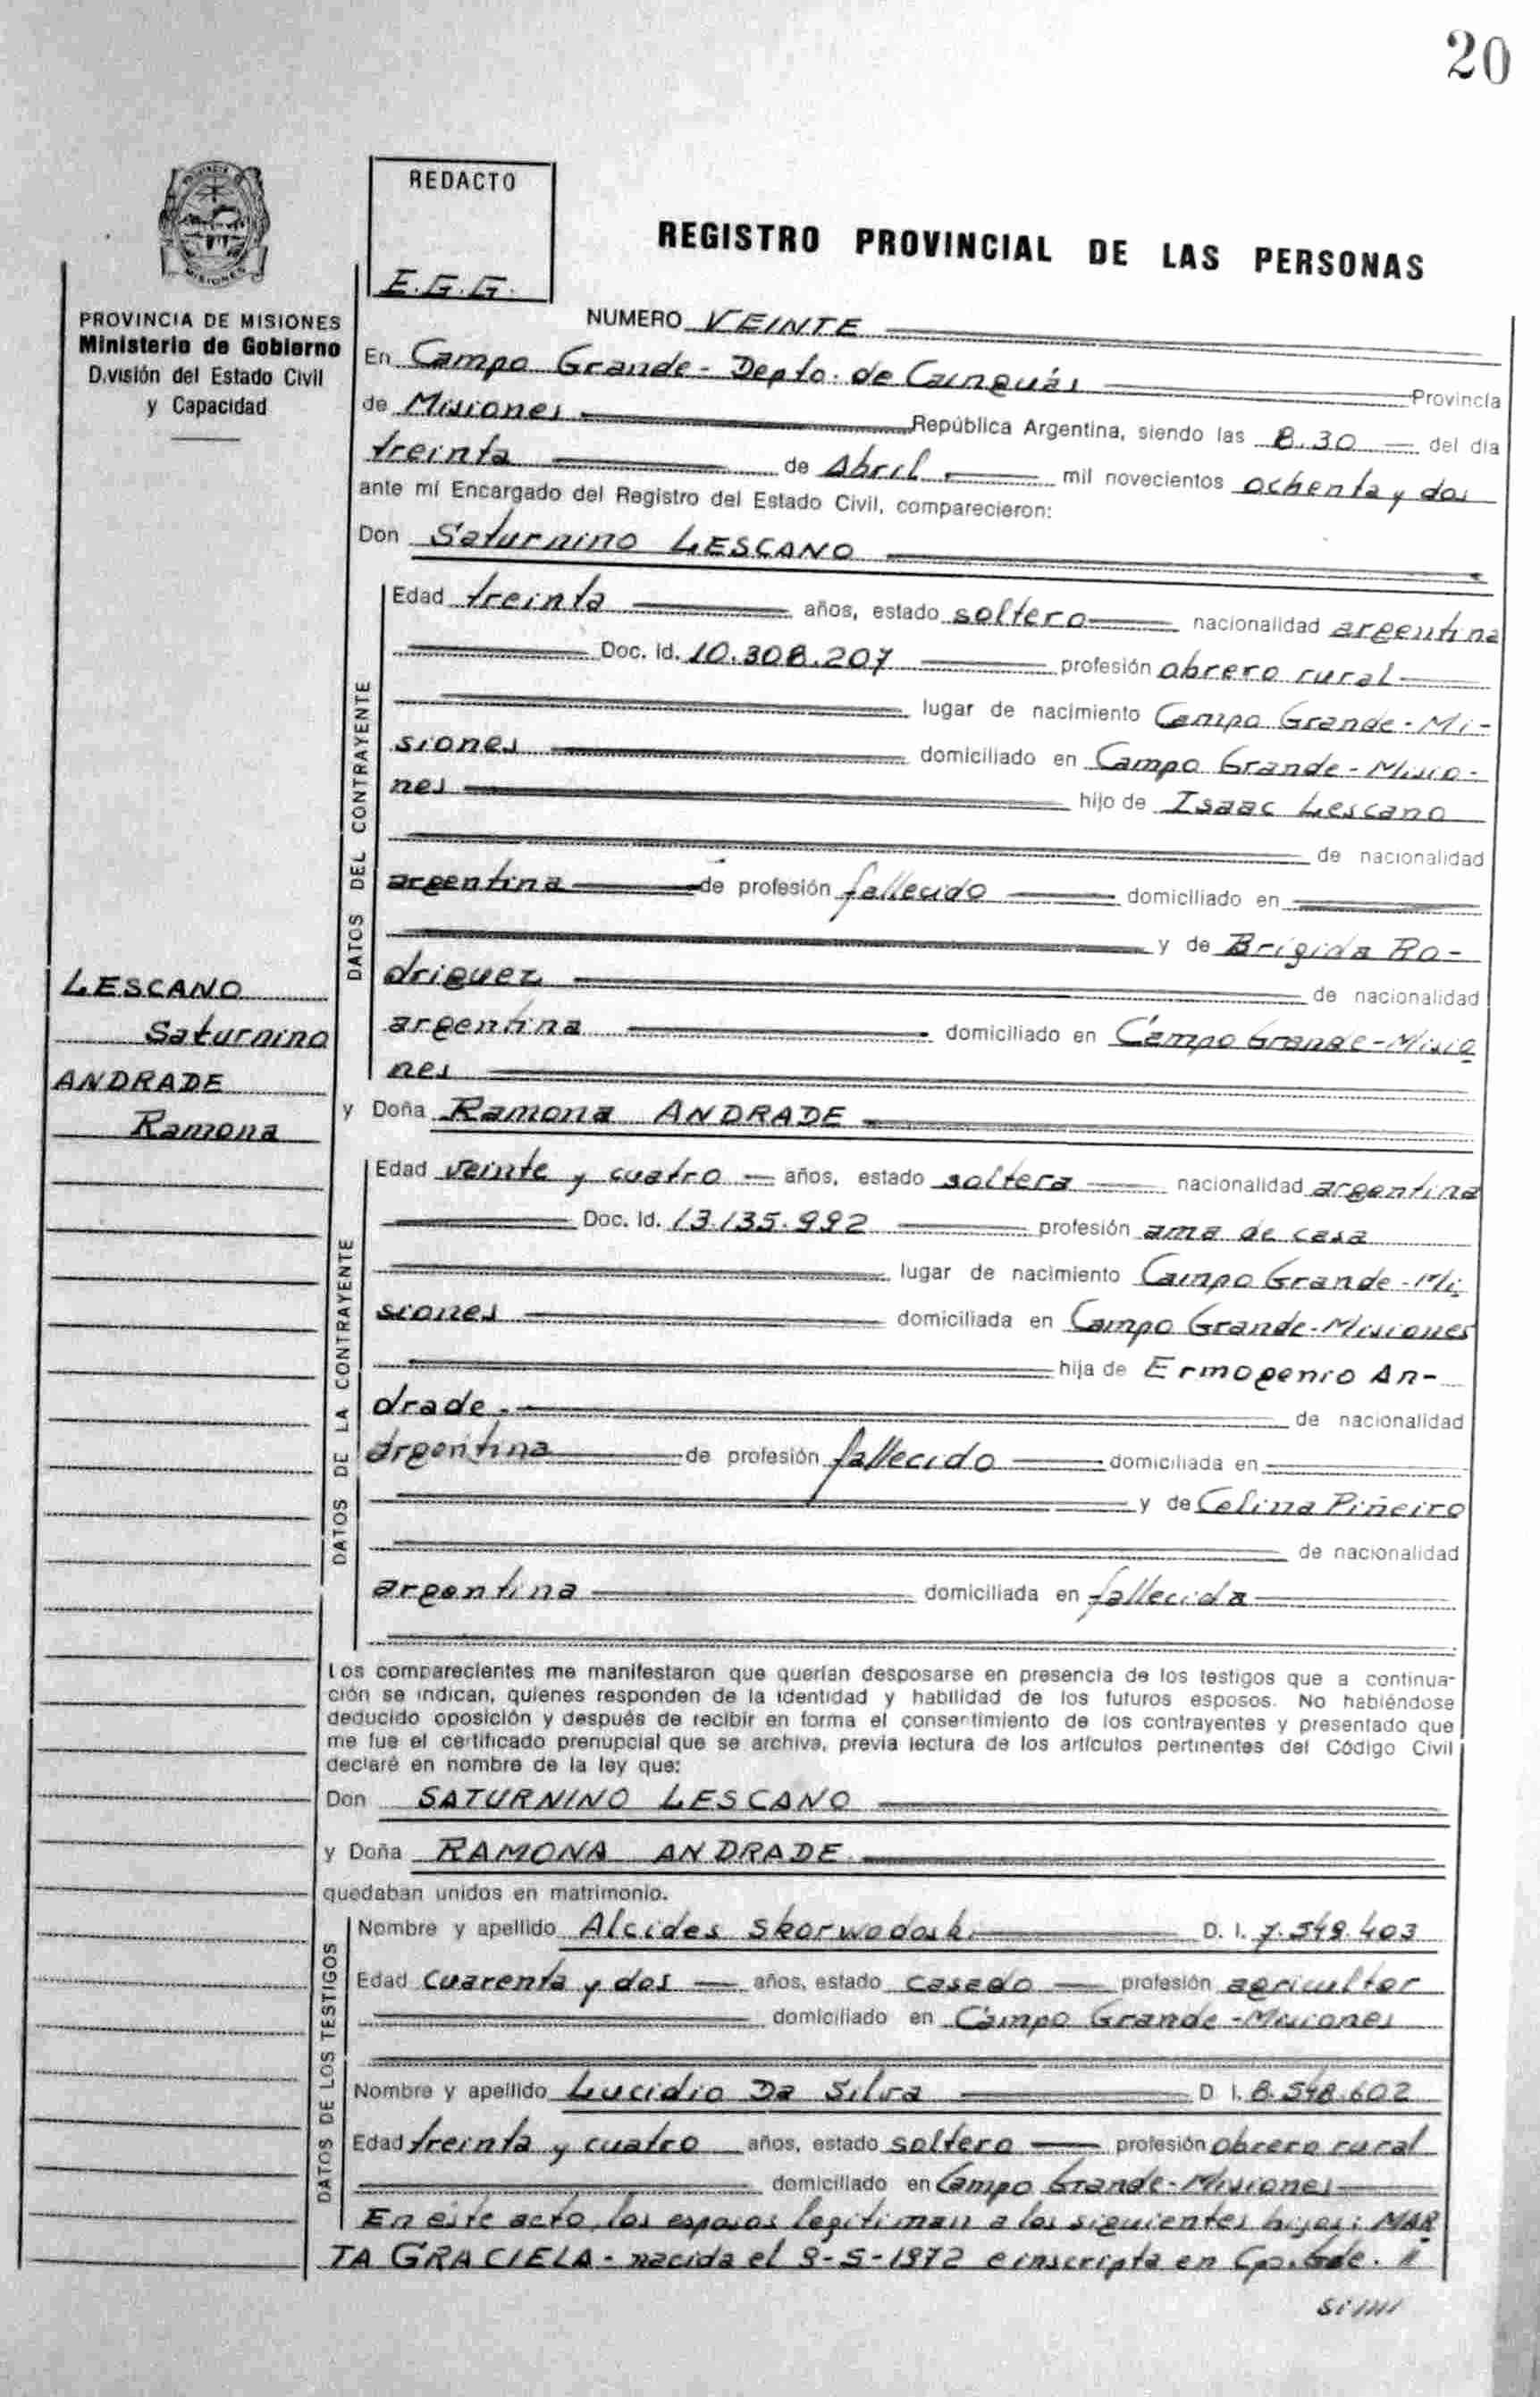 20
REDACTO
E.G.G.
REGISTRO PROVINCIAL DE LAS PERSONAS
PROVINCIA DE MISIONES
Ministerio de Gobierno
División del Estado Civil
y Capacidad
NUMERO VEINTE
En Campo Grande - Depto. de Cainguás Provincia
de Misiones República Argentina, siendo las 8.30 del día
treinta de Abril mil novecientos ochenta y dos
ante mí Encargado del Registro del Estado Civil, comparecieron:
Don Saturnino LESCANO
DATOS DEL CONTRAYENTE
Edad treinta años, estado soltero nacionalidad argentina
Doc. Id. 10.308.207 profesión obrero rural
lugar de nacimiento Campo Grande - Mi-
siones domiciliado en Campo Grande - Misio-
nes hijo de Isaac Lescano
de nacionalidad
argentina de profesión fallecido domiciliado en
y de Brígida Ro-
driguez de nacionalidad
argentina domiciliado en Campo Grande - Misio
nes
LESCANO
Saturnino
ANDRADE
Ramona
y Doña Ramona ANDRADE
DATOS DE LA CONTRAYENTE
Edad veinte y cuatro años, estado soltera nacionalidad argentina
Doc. Id. 13.135.992 profesión ama de casa
lugar de nacimiento Campo Grande - Mi
siones domiciliada en Campo Grande - Misiones
hija de Ermogenio An-
drade.- de nacionalidad
argentina de profesión fallecido domiciliada en
y de Celina Piñeiro
de nacionalidad
argentina domiciliada en fallecida
Los comparecientes me manifestaron que querían desposarse en presencia de los testigos que a continua-
ción se indican, quienes responden de la identidad y habilidad de los futuros esposos. No habiéndose
deducido oposición y después de recibir en forma el consentimiento de los contrayentes y presentado que
me fue el certificado prenupcial que se archiva, previa lectura de los artículos pertinentes del Código Civil
declaré en nombre de la ley que:
Don SATURNINO LESCANO
y Doña RAMONA ANDRADE
quedaban unidos en matrimonio.
DATOS DE LOS TESTIGOS
Nombre y apellido Alcides Skorwodoski D. I. 7.549.403
Edad cuarenta y dos años, estado casado profesión agricultor
domiciliado en Campo Grande - Misiones
Nombre y apellido Lucidio Da Silva D I. 8.548.602
Edad treinta y cuatro años, estado soltero profesión obrero rural
domiciliado en Campo Grande - Misiones
En este acto, los esposos legitiman a los siguientes hijos: MAR
TA GRACIELA - nacida el 9-5-1972 e inscripta en Cpo. Gde.